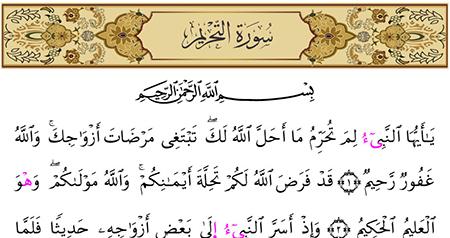 سُورَةُ التَّحْرِيمِ
بِسْمِ ٱللَّهِ ٱلرَّحْمَٰنِ ٱلرَّحِيمِ
يَٰٓأَيُّهَا ٱلنَّبِيٓءُ لِمَ تُحَرِّمُ مَآ أَحَلَّ ٱللَّهُ لَكَۖ تَبْتَغِے مَرْضَاتَ أَزْوَٰجِكَۚ وَٱللَّهُ
غَفُورٞ رَّحِيمٞ ﴿١﴾ قَدْ فَرَضَ ٱللَّهُ لَكُمْ تَحِلَّةَ أَيْمَٰنِكُمْۚ وَٱللَّهُ مَوْلَىٰكُمْۖ وَهْوَ
ٱلْعَلِيمُ ٱلْحَكِيمُ ﴿٢﴾ وَإِذْ أَسَرَّ ٱلنَّبِيٓءُ إِلَىٰ بَعْضِ أَزْوَٰجِهِۦ حَدِيثٗا فَلَمَّا